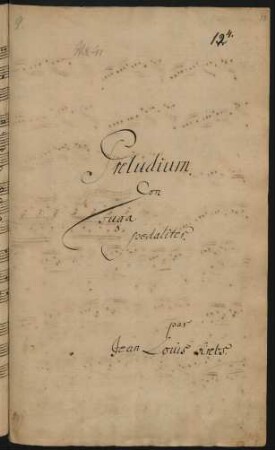 12 4.
Preludium
Con
Fuga
pedaliter.
par
Jean Louis Krebs.